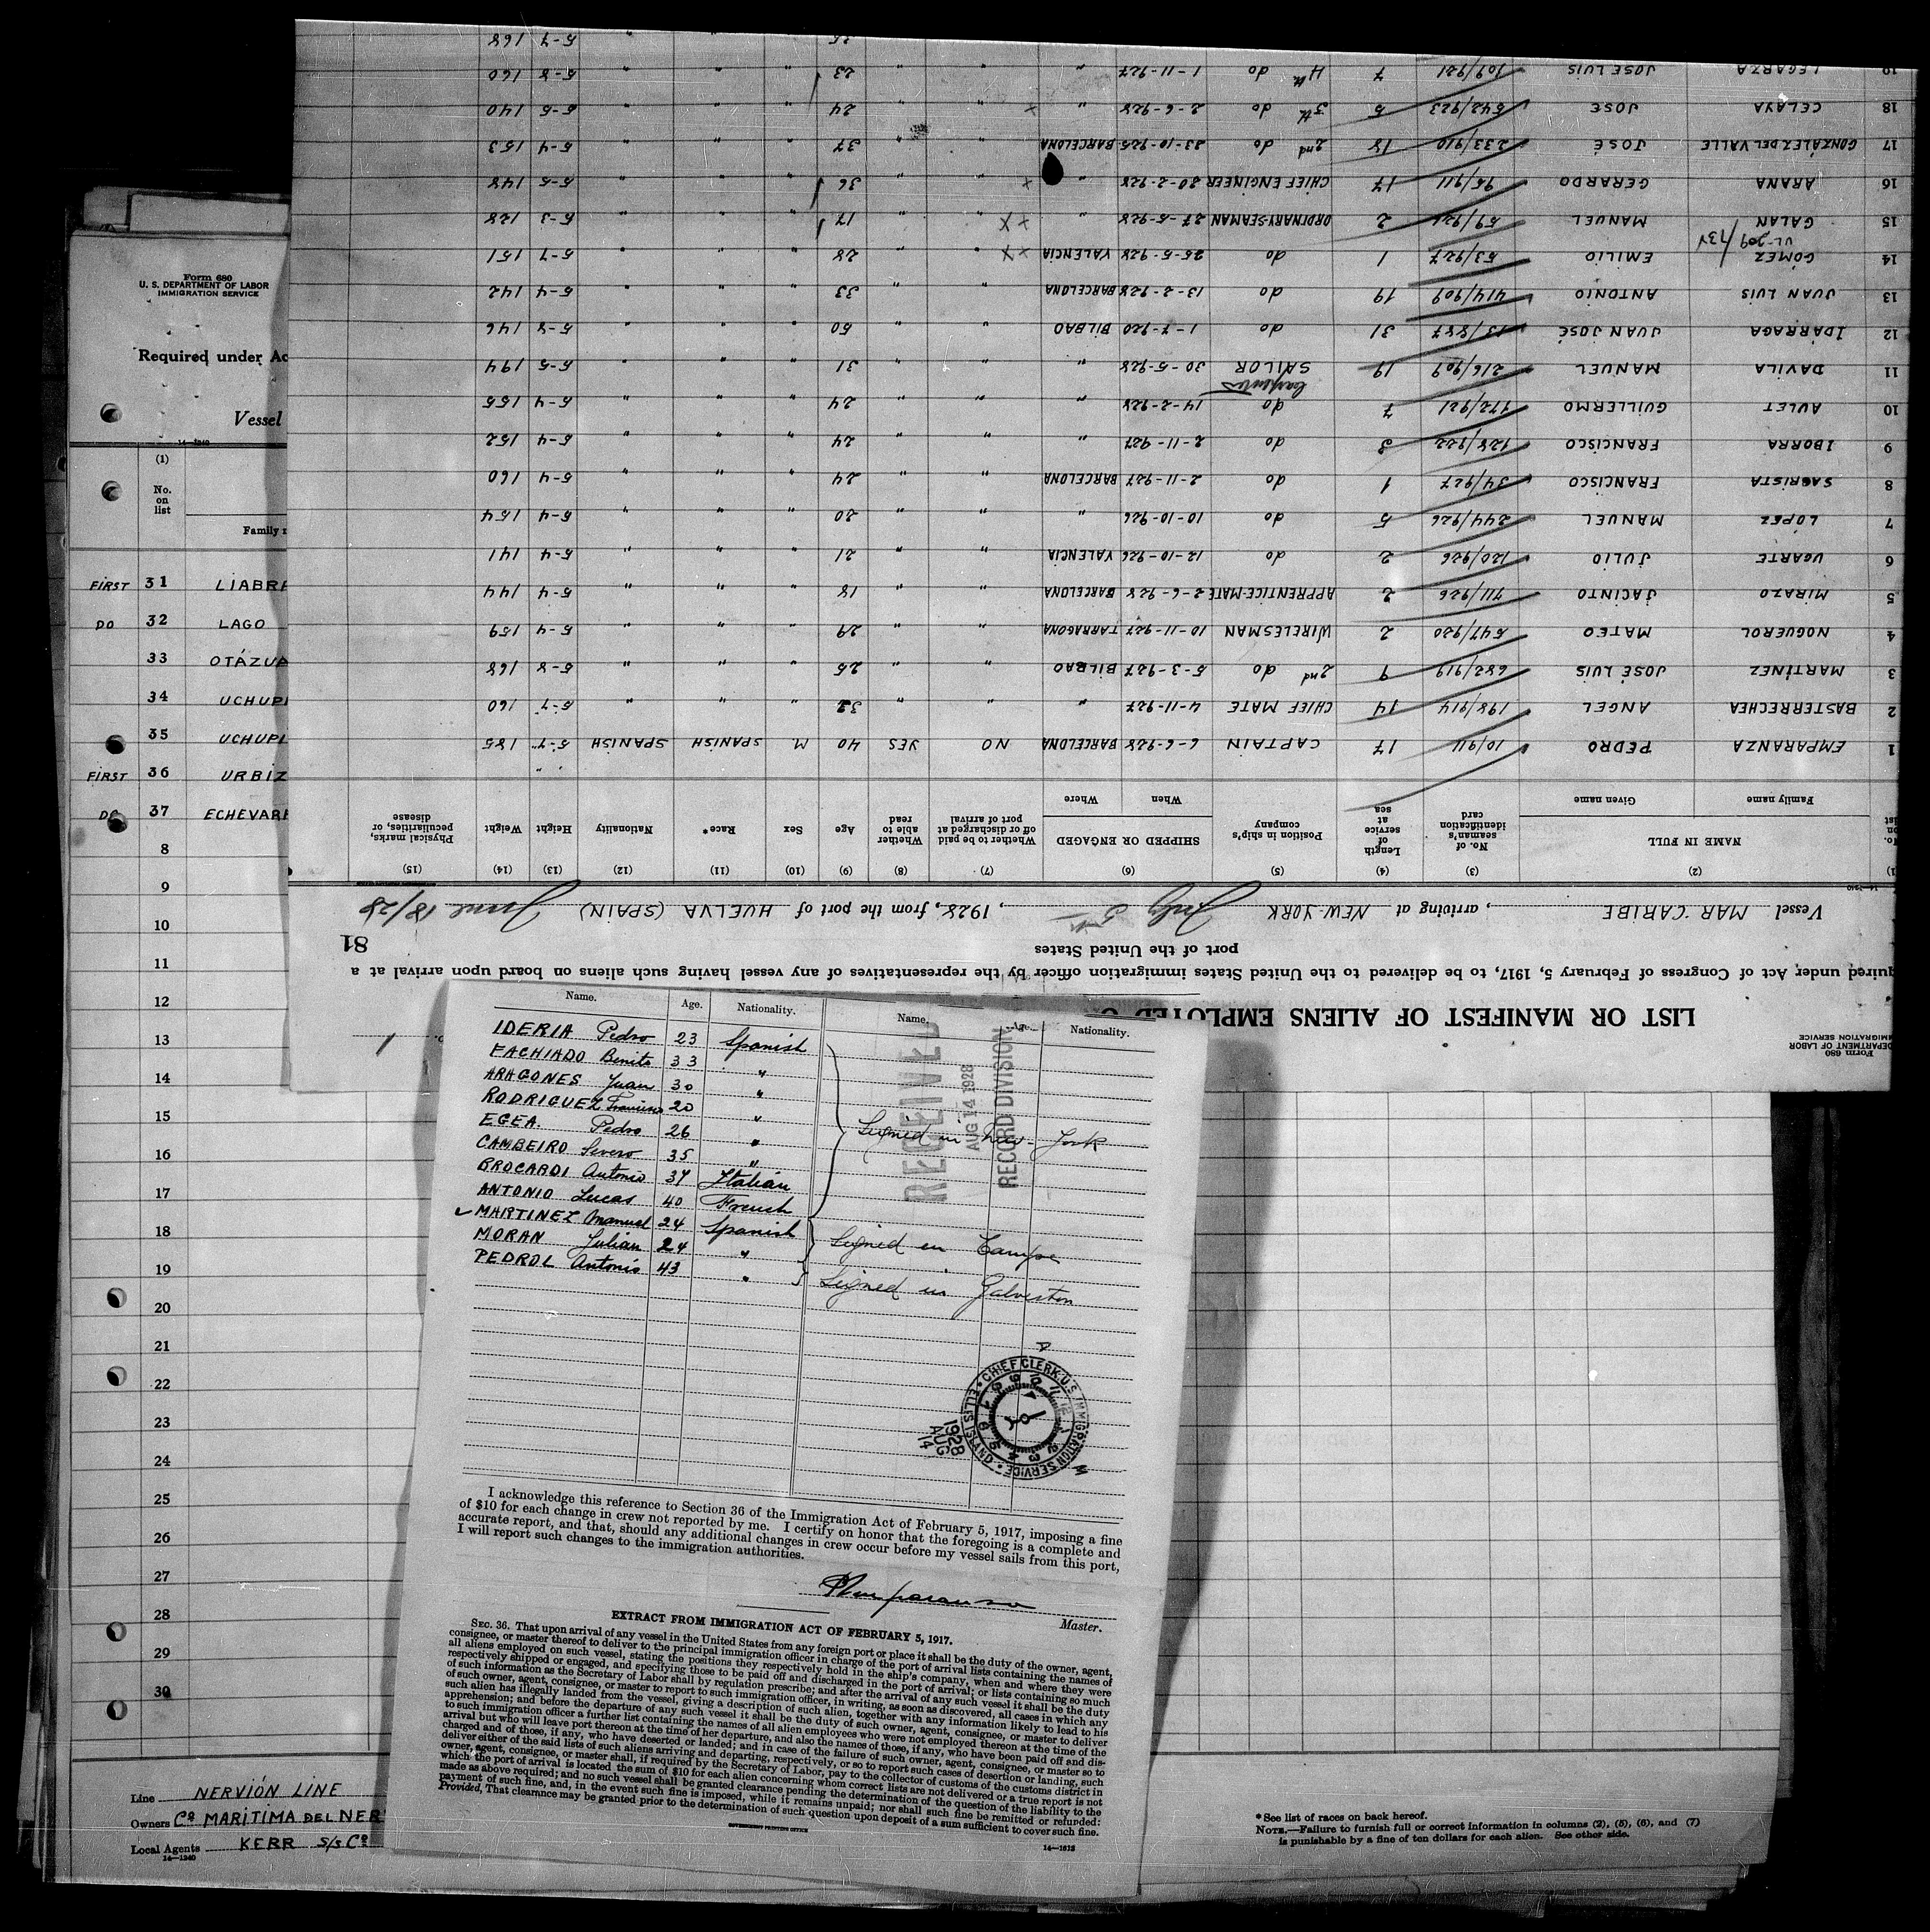 Form 680
U. S. DEPARTMENT OF LABOR
IMMIGRATION SERVICE
Required under Ac
Vessel
14—1240
(1)
No. on list
Family n
FIRST 31 LIABRE
DO 32 LAGO
33 OTÁZUA
34 UCHUPI
35 UCHUPI
FIRST 36 URBIZ
DO 37 ECHEVARR
8
9
10
11
12
13
14
15
16
17
18
19
20
21
22
23
24
25
26
27
28
29
30
Line NERVIÓN LINE
Owners Cª MARITIMA DEL NER
Local Agents KERR S/S Cº
14—1240
*See list of races on back hereof.
NOTE.—Failure to furnish full or correct information in columns (2), (5), (6), and (7)
is punishable by a fine of ten dollars for each alien. See other side.
Form 680
DEPARTMENT OF LABOR
IMMIGRATION SERVICE
LIST OR MANIFEST OF ALIENS EMPLOYED O
quired under Act of Congress of February 5, 1917, to be delivered to the United States immigration officer by the representatives of any vessel having such aliens on board upon arrival at a
port of the United States
81
Vessel MAR CARIBE, arriving at NEW-YORK July 5th, 1928, from the port of HUELVA (SPAIN) June 18/28
14—1240
(1) (2) (3) (4) (5) (6) (7) (8) (9) (10) (11) (12) (13) (14) (15)
No. on list NAME IN FULL No. of seaman's identification card Length of service at sea Position in ship's company SHIPPED OR ENGAGED Whether to be paid off or discharged at port of arrival Whether able to read Age Sex Race* Nationality Height Weight Physical marks, peculiarities, or disease
Family name Given name When Where
1 EMPARANZA PEDRO 10/911 17 CAPTAIN 6-6-928 BARCELONA NO YES 40 M SPANISH SPANISH 5-7" 185
2 BASTERRECHEA ANGEL 198/914 14 CHIEF MATE 4-11-927 " " " 32 " " " 5-7" 160
3 MARTÍNEZ JOSÉ LUIS 682/919 9 2nd do 5-3-927 BILBAO " " 25 " " " 5-8 168
4 NOGUEROL MATEO 547/920 2 WIRELESMAN 10-11-927 TARRAGONA " " 29 " " " 5-4 159
5 MIRAZO JACINTO 711/926 2 APPRENTICE-MATE 2-6-928 BARCELONA " " 18 " " " 5-4 144
6 UGARTE JULIO 120/926 2 do 12-10-926 VALENCIA " " 21 " " " 5-4 141
7 LÓPEZ MANUEL 244/926 5 do 10-10-926 " " " 20 " " " 5-4 154
8 SACRISTA FRANCISCO 34/927 1 do 2-11-927 BARCELONA " " 24 " " " 5-4 160
9 IBORRA FRANCISCO 128/922 3 do 2-11-927 " " " 24 " " " 5-4 152
10 AULET GUILLERMO 172/921 7 do 14-2-928 " " " 24 " " " 5-4 155
11 DAVILA MANUEL 216/909 19 carpenter SAILOR 30-5-928 " " " 31 " " " 5-5 194
12 IDARRAGA JUAN JOSÉ 13/887 31 do 1-7-920 BILBAO " " 50 " " " 5-8 146
13 JUAN LUIS ANTONIO 414/909 19 do 13-2-928 BARCELONA " " 33 " " " 5-4 142
14 GÓMEZ EMILIO 53/927 1 do 25-5-928 VALENCIA " " 28 " " " 5-7 151
15 GALAN MANUEL 59/926 2 ORDINARY-SEAMAN 27-5-928 " " " 17 " " " 5-3 128
16 ARANA GERARDO 95/911 17 CHIEF ENGINEER 20-2-928 " " " 36 " " " 5-5 148
17 GONZÁLEZ DEL VALLE JOSÉ 233/910 18 2nd do 23-10-925 BARCELONA " " 37 " " " 5-4 153
18 CELAYA JOSE 542/923 5 3th do 2-6-928 " " " 24 " " " 5-5 140
19 LEGARZA JOSE LUIS 109/921 7 4th do 1-11-927 " " " 23 " " " 5-8 160
5-7 168
Name. Age. Nationality. Name. Age. Nationality.
IDERIA Pedro 23 Spanish
FACHIADO Benito 33 "
ARAGONES Juan 30 "
RODRIGUEZ Francisco 20 "
EGEA. Pedro 26 "
CAMBEIRO Severo 35 "
BROCARDI Antonio 37 Italian
ANTONIO Lucas 40 French
MARTINEZ Manuel 24 Spanish
MORAN Julian 24 "
PEDROL Antonio 43 "
Signed in New-York
Signed in Tampa
Signed in Galveston
RECEIVED
AUG 14 1928
RECORD DIVISION
CHIEF CLERK U.S. IMMIGRATION SERVICE • ELLIS ISLAND •
1928
AUG
14
I acknowledge this reference to Section 36 of the Immigration Act of February 5, 1917, imposing a fine
of $10 for each change in crew not reported by me. I certify on honor that the foregoing is a complete and
accurate report, and that, should any additional changes in crew occur before my vessel sails from this port,
I will report such changes to the immigration authorities.
PEmparanza
Master.
EXTRACT FROM IMMIGRATION ACT OF FEBRUARY 5, 1917.
SEC. 36. That upon arrival of any vessel in the United States from any foreign port or place it shall be the duty of the owner, agent,
consignee, or master thereof to deliver to the principal immigration officer in charge of the port of arrival lists containing the names of
all aliens employed on such vessel, stating the positions they respectively hold in the ship's company, when and where they were
respectively shipped or engaged, and specifying those to be paid off and discharged in the port of arrival; or lists containing so much
of such information as the Secretary of Labor shall by regulation prescribe; and after the arrival of any such vessel it shall be the duty
of such owner, agent, consignee, or master to report to such immigration officer, in writing, as soon as discovered, all cases in which any
such alien has illegally landed from the vessel, giving a description of such alien, together with any information likely to lead to his
apprehension; and before the departure of any such vessel it shall be the duty of such owner, agent, consignee, or master to deliver
to such immigration officer a further list containing the names of all alien employees who were not employed thereon at the time of the
arrival but who will leave port thereon at the time of her departure, and also the names of those, if any, who have been paid off and dis-
charged and of those, if any, who have deserted or landed; and in case of the failure of such owner, agent, consignee, or master so to
deliver either of the said lists of such aliens arriving and departing, respectively, or so to report such cases of desertion or landing, such
owner, agent, consignee, or master shall, if required by the Secretary of Labor, pay to the collector of customs of the customs district in
which the port of arrival is located the sum of $10 for each alien concerning whom correct lists are not delivered or a true report is not
made as above required; and no such vessel shall be granted clearance pending the determination of the question of the liability to the
payment of such fine, and, in the event such fine is imposed, while it remains unpaid; nor shall such fine be remitted or refunded:
Provided, That clearance may be granted prior to the determination of such question upon deposit of a sum sufficient to cover such fine.
GOVERNMENT PRINTING OFFICE
14—1613